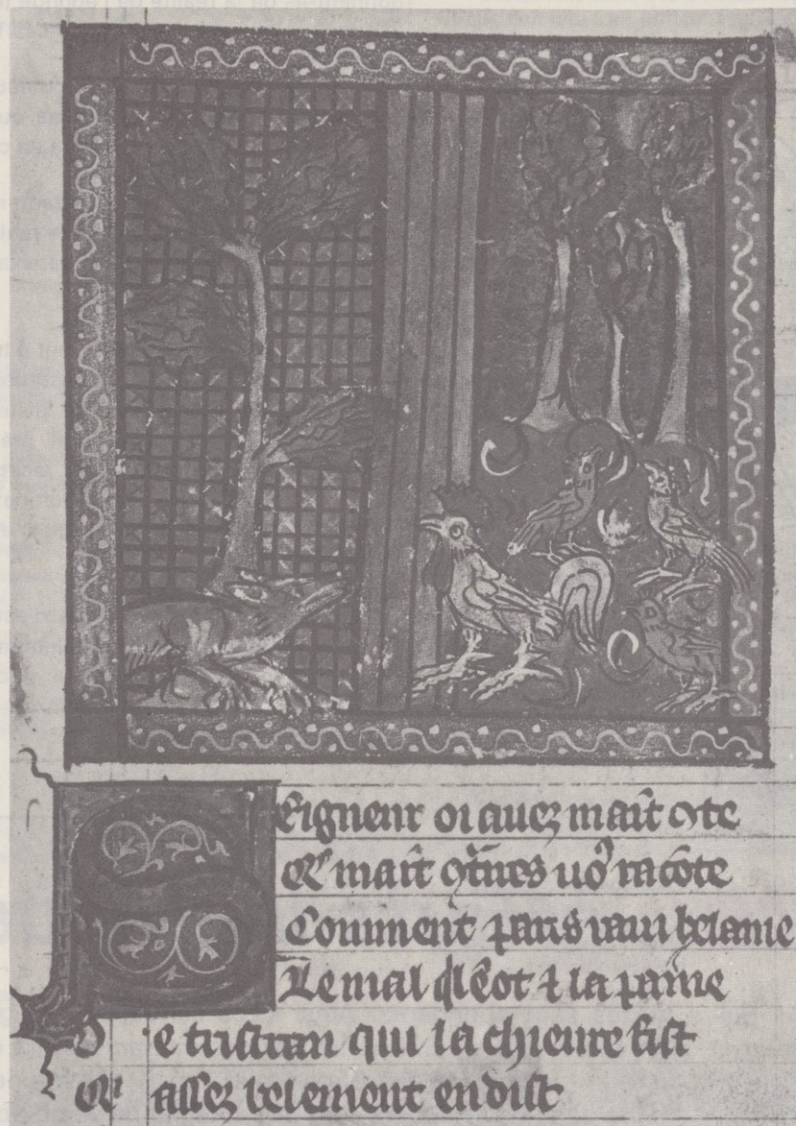 Seigneur oi avez mait 9te
Et mait 9t̃res uo᷒ racōte
Comment paris raui helaine
Le mal q̃l ēot ⁊ la paine
De tristran qui la chieure fist
Et assez belement en dist